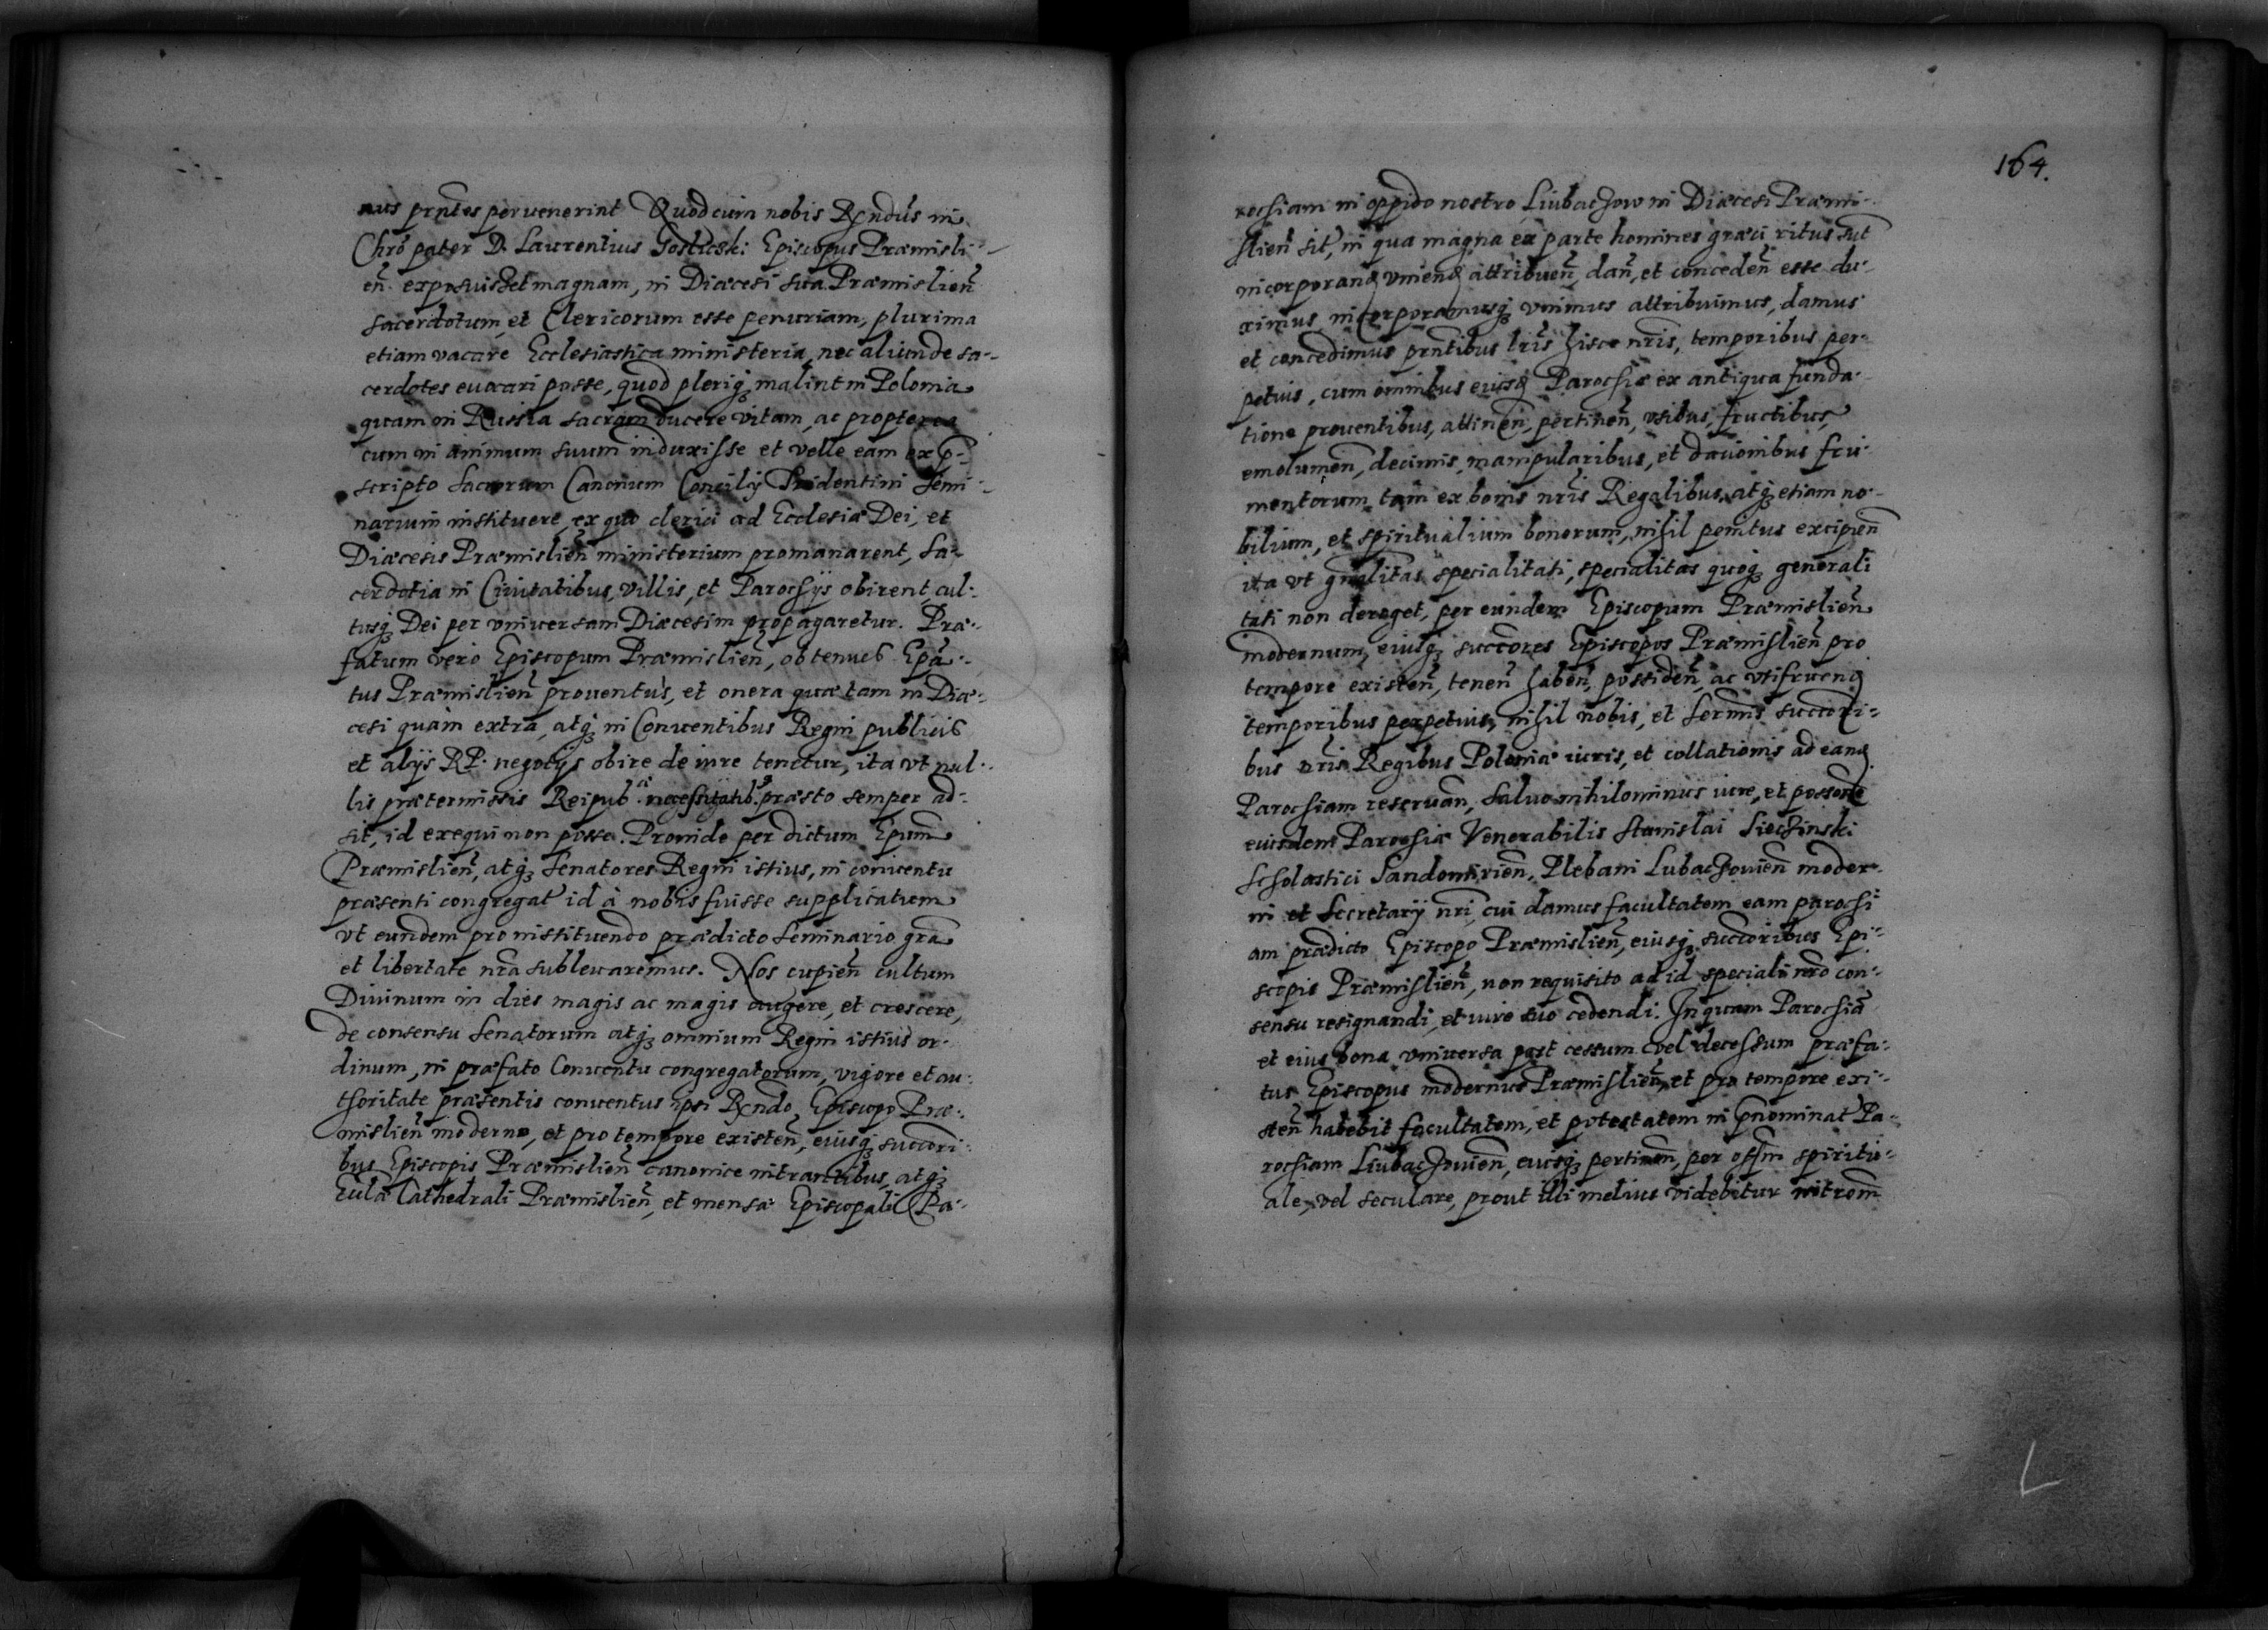 nus prntes pervenerint Quod cum nobis Rndus in
Chro pater D. Laurentius Goslicski Episcopus Præmisli-
en exposuisset magnam, in Diæcesi sua Præmislien
sacerdotum, et Clericorum esse penuriam, plurima
etiam vacare Ecclesiastica ministeria, nec aliunde sa-
cerdotes evocari posse, quod pleriq malint in Polonia
quam in Russia sacram ducere vitam, ac propterea
cum in animum suum induxisse et velle eam ex p-
scripto sacrorum Canonum Concilij Tridentini Semi-
narium instituere, ex quo clerici ad Ecclesiæ Dei, et
Diæcesis Præmislien ministerium promanarent, Sa-
cerdotia in Civitatibus, villis, et Parochijs obirent, cul-
tusq Dei per universam Diæcesim propagaretur. Præ-
fatum vero Episcopum Præmislien, obtenues Epa-
tus Præmislien proventus, et onera quæ tam in Diæ-
cesi quam extra, atq in Conventibus Regni publicis
et alijs RP. negotijs obire de iure tenetur, ita vt nul-
lis prætermissis Reipub necessitatib præsto semper ad-
sit, id exequi non posse. Proinde per dictum Epum
Præmislien, atq Senatores Regni istius, in conventu
præsenti congregat id à nobis fuisse supplicatum
vt eundem pro instituendo prædicto Seminario gra
et libertate nra sublevaremus. Nos cupien cultum
Divinum in dies magis ac magis augere, et crescere,
de consensu Senatorum atq omnium Regni istius or-
dinum, in præfato Conventu congregatorum, vigore et au-
thoritate præsentis conventus ipsi Rndo Episcopo Præ-
mislien moderno, et pro tempore existen, eiusq succori-
bus Episcopis Præmislien canonice intrantibus, atq
Eccla Cathedrali Præmislien, et mensæ Episcopali Pa-
164.
rochiam in oppido nostro Liubachow in Diæcesi Præmi-
slien sit, in qua magna ex parte homines græci ritus sut
incorporand uniend attribuen, dan, et conceden esse du-
ximus, incorporamusq vnimus attribuimus, damus
et concedimus prntibus lris hisce nris, temporibus per-
petuis, cum omnibus eiusd Parochiæ ex antiqua funda-
tione proventibus, attinen, pertinen, vsibus, fructibus,
emolumen, decimis, manipularibus, et dationibus fru-
mentorum, tam ex bonis nris Regalibus, atq etiam no-
bilium, et spiritualium bonorum, nihil penitus excipien
ita vt gnalitas specialitati, specialitas quoq generali
tati non deroget, per eundem Episcopum Præmislien
modernum, eiusq succores Episcopos Præmislien pro
tempore existen, tenen haben, possiden, ac vtifruend
temporibus perpetuis, nihil nobis, et Sermis succori-
bus nris Regibus Poloniæ iuris, et collationis ad eand
Parochiam reservan, Salvo nihilominus iure, et possone
eiusdem Parochiæ Venerabilis Stanislai Siechinski
Scholastici Sandomirien, Plebani Lubachovien moder-
ni et Secretarij nri, cui damus facultatem eam parochi
am prædicto Episcopo Præmislien, eiusq succoribus Epi-
scopis Præmislien, non requisito ad id speciali nro con-
sensu resignandi, et iure suo cedendi. In quam Parochia
et eius bona universa post cessum vel decessum præfa-
tus Episcopus modernus Præmislien, et pro tempore exi-
sten habebit facultatem, et potestatem in pnominat Pa-
rochiam Liubachovien, eiusq pertinen, per offm spiritu-
ale, vel seculare, prout illi melius videbitur introm